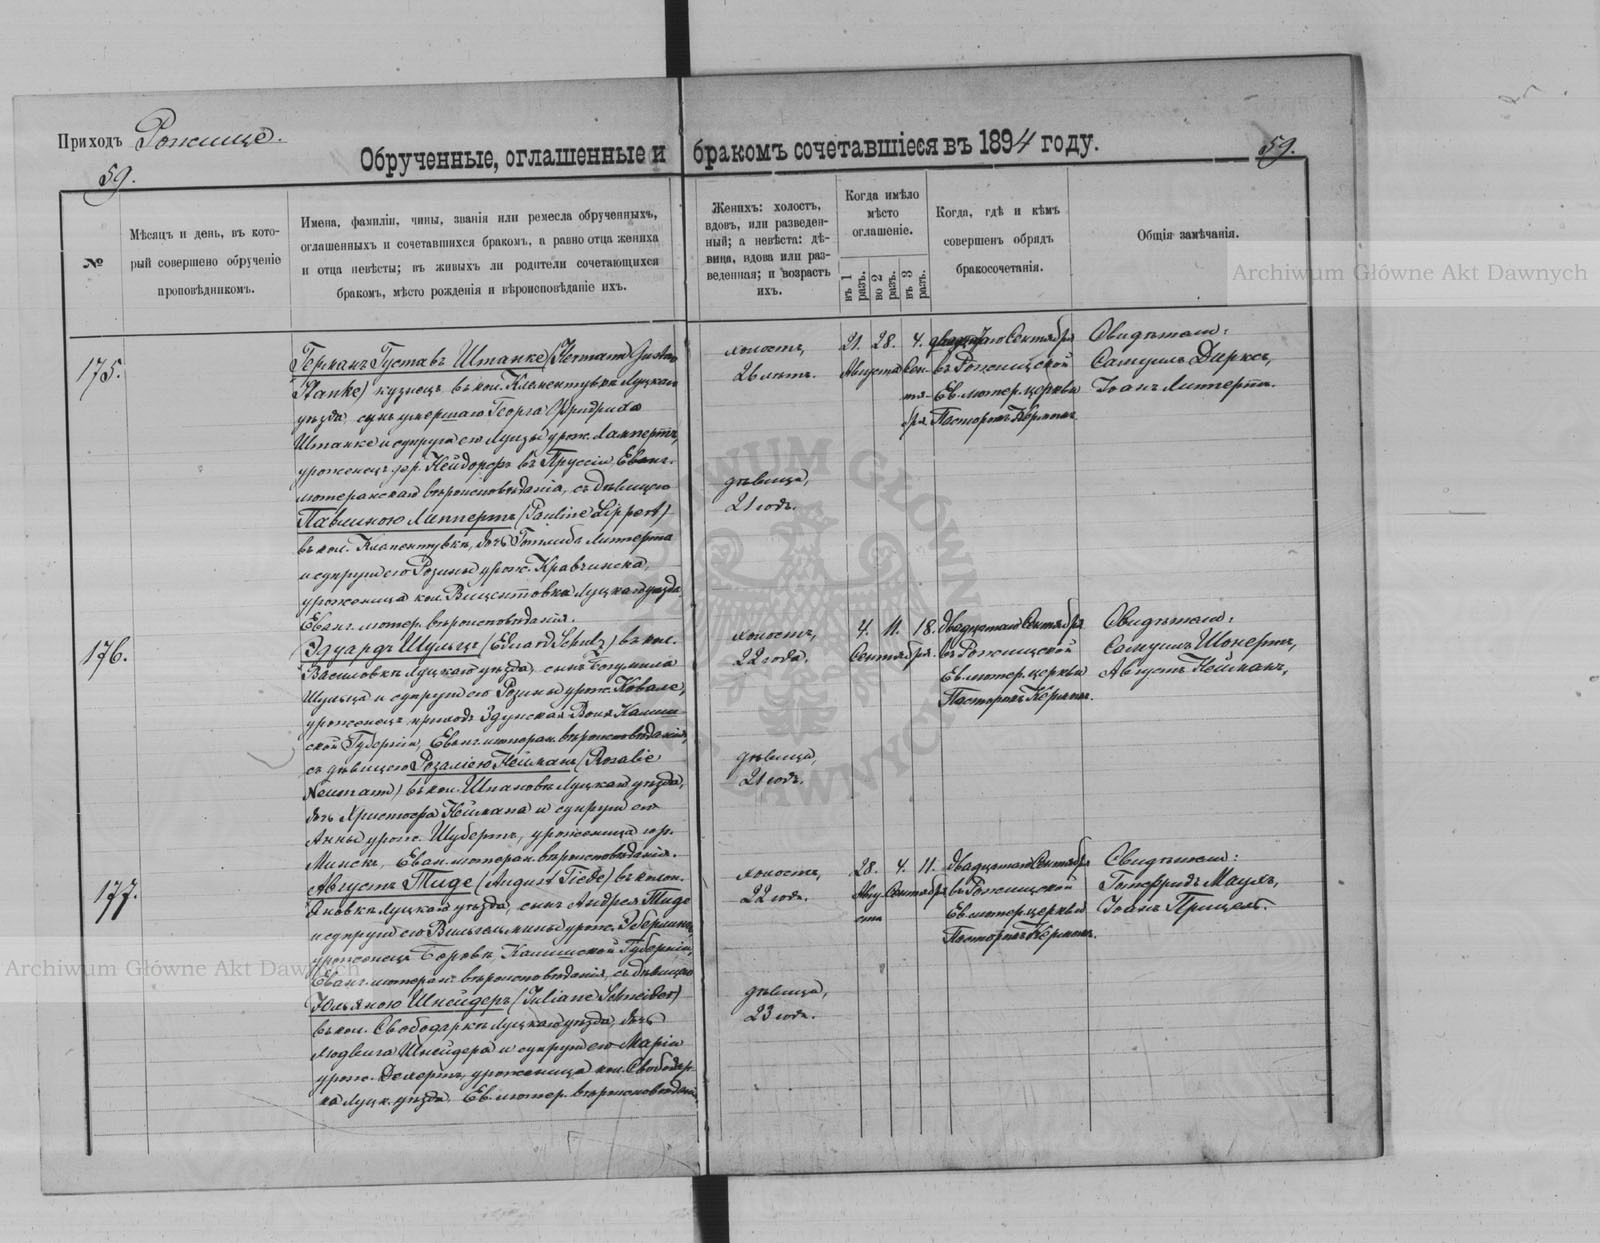 Приходъ Рожище.
59.
Обрученные, оглашенные и бракомъ сочетавшіеся въ 1894 году.
59.
№
Мѣсяцъ и день, въ кото-
рый совершено обрученіе
проповѣдникомъ.
Имена, фамиліи, чины, званія или ремесла обрученныхъ,
оглашенныхъ и сочетавшихся бракомъ, а равно отца жениха
и отца невѣсты; въ живыхъ ли родители сочетающихся
бракомъ, мѣсто рожденія и вѣроисповѣданіе ихъ.
Женихъ: холостъ,
вдовъ, или разведен-
ный; а невѣста: дѣ-
вица, вдова или раз-
веденная; и возрастъ
ихъ.
Когда имѣло
мѣсто
оглашеніе.
въ 1 разъ.
во 2 разъ.
въ 3 разъ.
Когда, гдѣ и кѣмъ
совершенъ обрядъ
бракосочетанія.
Общія замѣчанія.
Archiwum Główne Akt Dawnych
175.
Германъ Густавъ Штанке (Hermann Gustav
Stanke) кузнецъ въ кол. Клементувкѣ Луцкаго
уѣзда, сынъ умершаго Георга Фридриха
Штанке и супруги его Луизы урож. Лампертъ,
уроженецъ гор. Нейдорфъ въ Пруссіи, Еванг.
лютеранскаго вѣроисповѣданія, съ дѣвицею
Павлиною Липпертъ (Pauline Lippert)
въ кол. Клементувкѣ, дочь Готлиба Липерта
и супруги его Розины урож. Кравчинска,
уроженица кол. Вицентовка Луцкаго уѣзда,
Еванг. лютер. вѣроисповѣданія.
холостъ,
26 лѣтъ.
дѣвица,
21 годъ.
21. 28. 4.
Августа Сен-
тя-
бря.
Сентября
въ Рожищской
Ев. лютер. церкви
Пасторомъ Керномъ.
Свидѣтели:
Самуилъ Дирксъ,
Іоанъ Липертъ.
176.
Эдуардъ Шульцъ (Eduard Schulz) въ кол.
Василовкѣ Луцкаго уѣзда, сынъ Богумила
Шульца и супруги его Розины урож. Ковальс,
уроженецъ приходъ Здунская Воля Калиш-
ской Губерніи, Еванг. лютеран. вѣроисповѣданія,
съ дѣвицею Розаліею Нейманъ (Rosalie
Neumann) въ кол. Шпановкѣ Луцкаго уѣзда,
дочь Христофа Неймана и супруги его
Анны урож. Шубертъ, уроженица гор.
Минскъ, Еван. лютеран. вѣроисповѣданія.
холостъ,
22 года.
дѣвица,
21 годъ.
4. 11. 18.
Сентября.
Двадцатаго Сентября
въ Рожищской
Ев. лютер. церкви
Пасторомъ Керномъ.
Свидѣтели:
Самуилъ Шонертъ,
Августъ Нейманъ.
177.
Августъ Тиде (August Tiede) въ колон.
Яновкѣ Луцкаго уѣзда, сынъ Андрея Тиде
и супруги его Вильгельмины урож. Эберлинъ,
уроженецъ Боровъ, Калишской Губерніи,
Еванг. лютеран. вѣроисповѣданія, съ дѣвицею
Юльяною Шнейдеръ (Juliane Schneider)
въ кол. Свободаркѣ Луцкаго уѣзда, дочь
Людвига Шнейдера и супруги его Маріи
урож. Делертъ, уроженица кол. Свободар-
ка Луцк. уѣзда. Ев. лютер. вѣроисповѣданія.
холостъ,
22 года.
дѣвица,
23 года.
28. 4. 11.
Авгу- Сентября
ста
Двадцатаго Сентября
въ Рожищской
Ев. лютер. церкви
Пасторомъ Керномъ.
Свидѣтели:
Готфридъ Маулъ,
Іоанъ Прицель.
Archiwum Główne Akt Dawnych